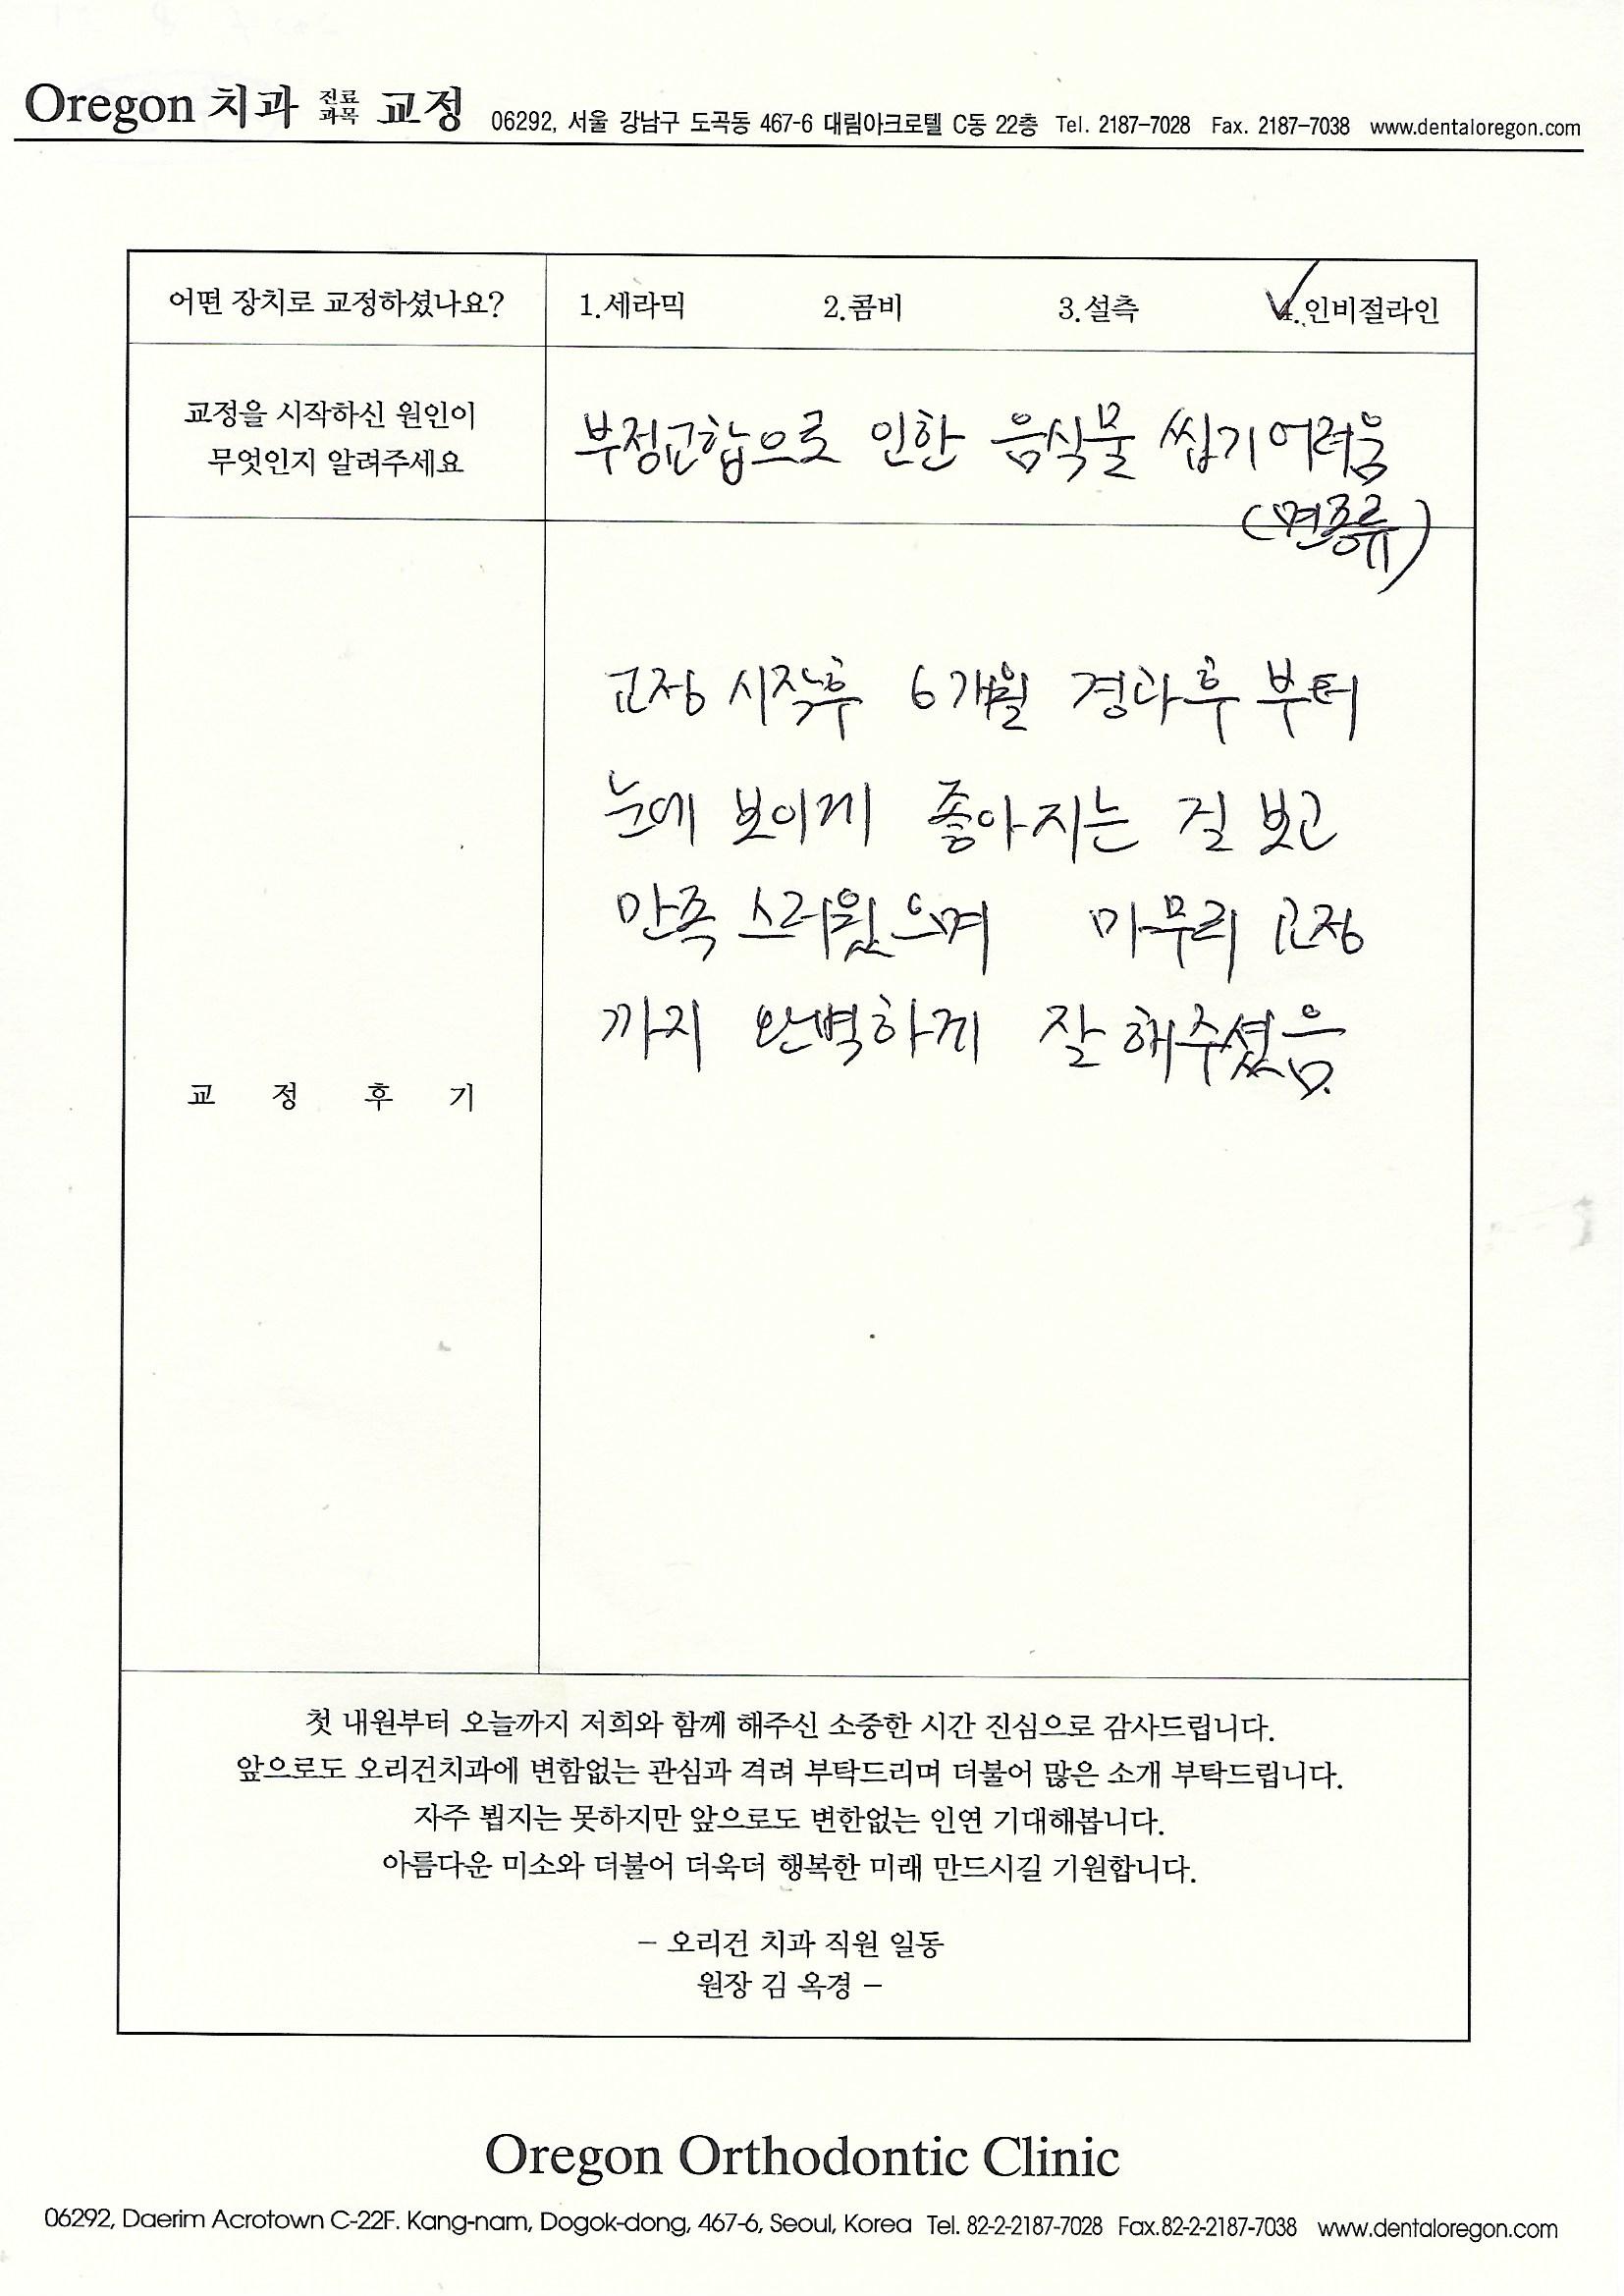 Oregon 치과 진료과목 교정 06292, 서울 강남구 도곡동 467-6 대림아크로텔 C동 22층 Tel. 2187-7028 Fax. 2187-7038 www.dentaloregon.com
어떤 장치로 교정하셨나요? 1.세라믹 2.콤비 3.설측 4.인비절라인
교정을 시작하신 원인이
무엇인지 알려주세요
부정교합으로 인한 음식물 씹기 어려움
(면종류)
교정 시작후 6개월 경과후 부터
눈에 보이게 좋아지는 걸 보고
만족 스러웠으며 마무리 교정
까지 완벽하게 잘 해주셨음.
교 정 후 기
첫 내원부터 오늘까지 저희와 함께 해주신 소중한 시간 진심으로 감사드립니다.
앞으로도 오리건치과에 변함없는 관심과 격려 부탁드리며 더불어 많은 소개 부탁드립니다.
자주 뵙지는 못하지만 앞으로도 변한없는 인연 기대해봅니다.
아름다운 미소와 더불어 더욱더 행복한 미래 만드시길 기원합니다.
- 오리건 치과 직원 일동
원장 김 옥경 -
Oregon Orthodontic Clinic
06292, Daerim Acrotown C-22F. Kang-nam, Dogok-dong, 467-6, Seoul, Korea Tel. 82-2-2187-7028 Fax.82-2-2187-7038 www.dentaloregon.com